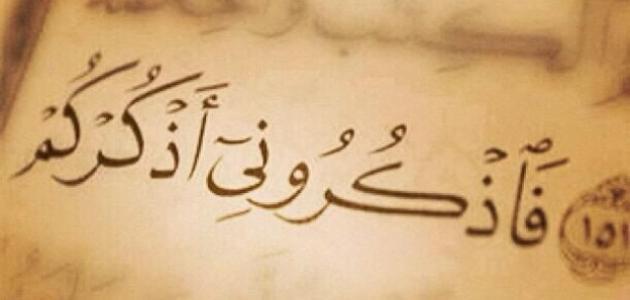 ١٥١ فَٱذۡكُرُونِيٓ أَذۡكُرۡكُمۡ